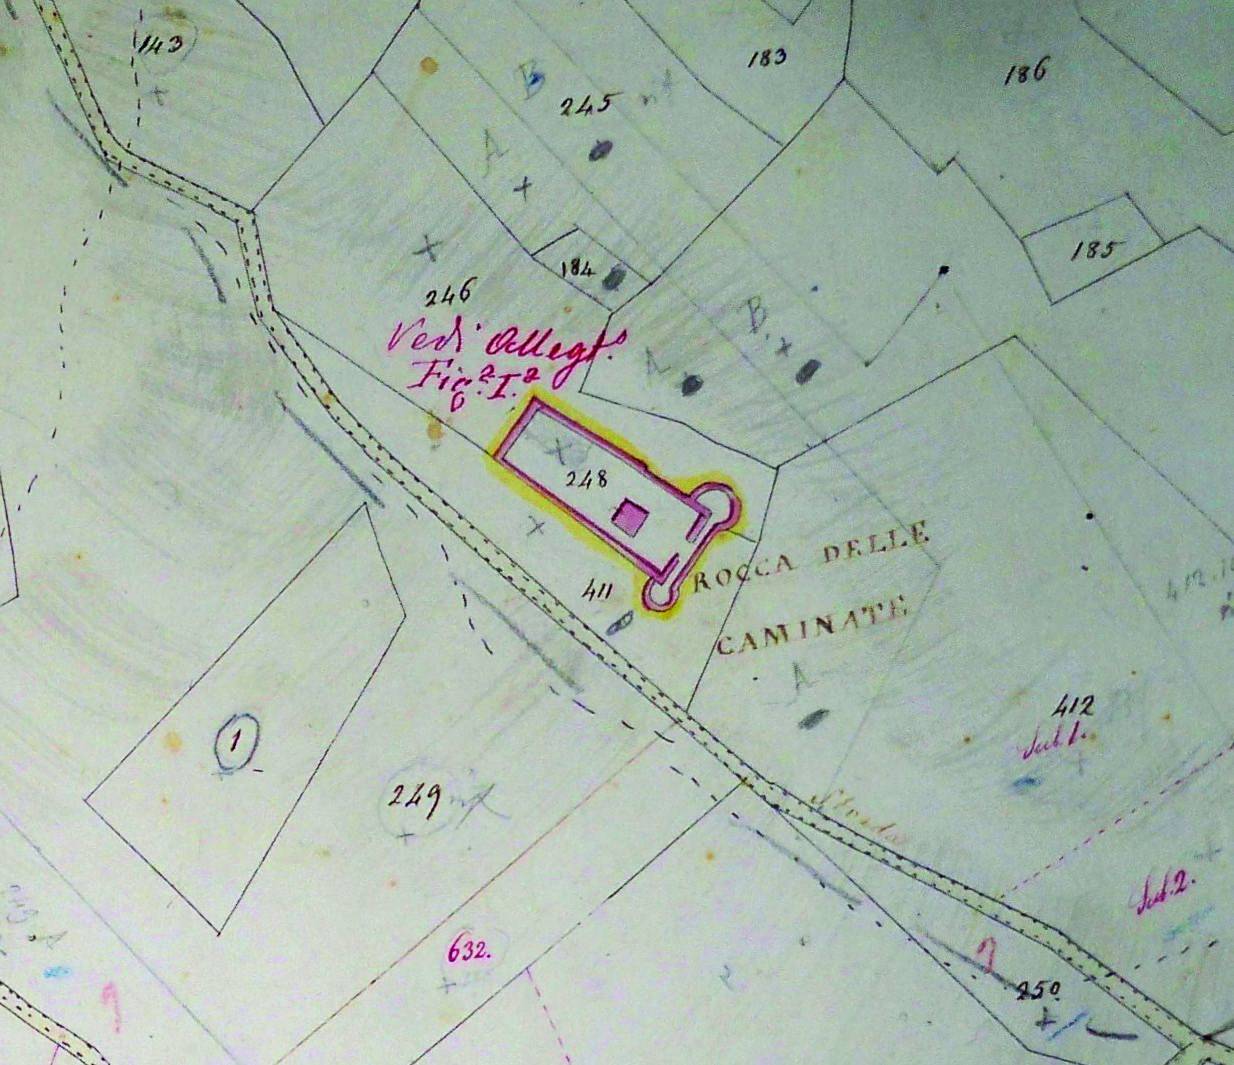 143
183
186
B
245
A
184
185
246
B.
A
Vedi Allegto
Fig.a I.a
248
411
ROCCA DELLE
CAMINATE
A
412
Sub.1.
1
249
Strada
Sub.2.
632.
250